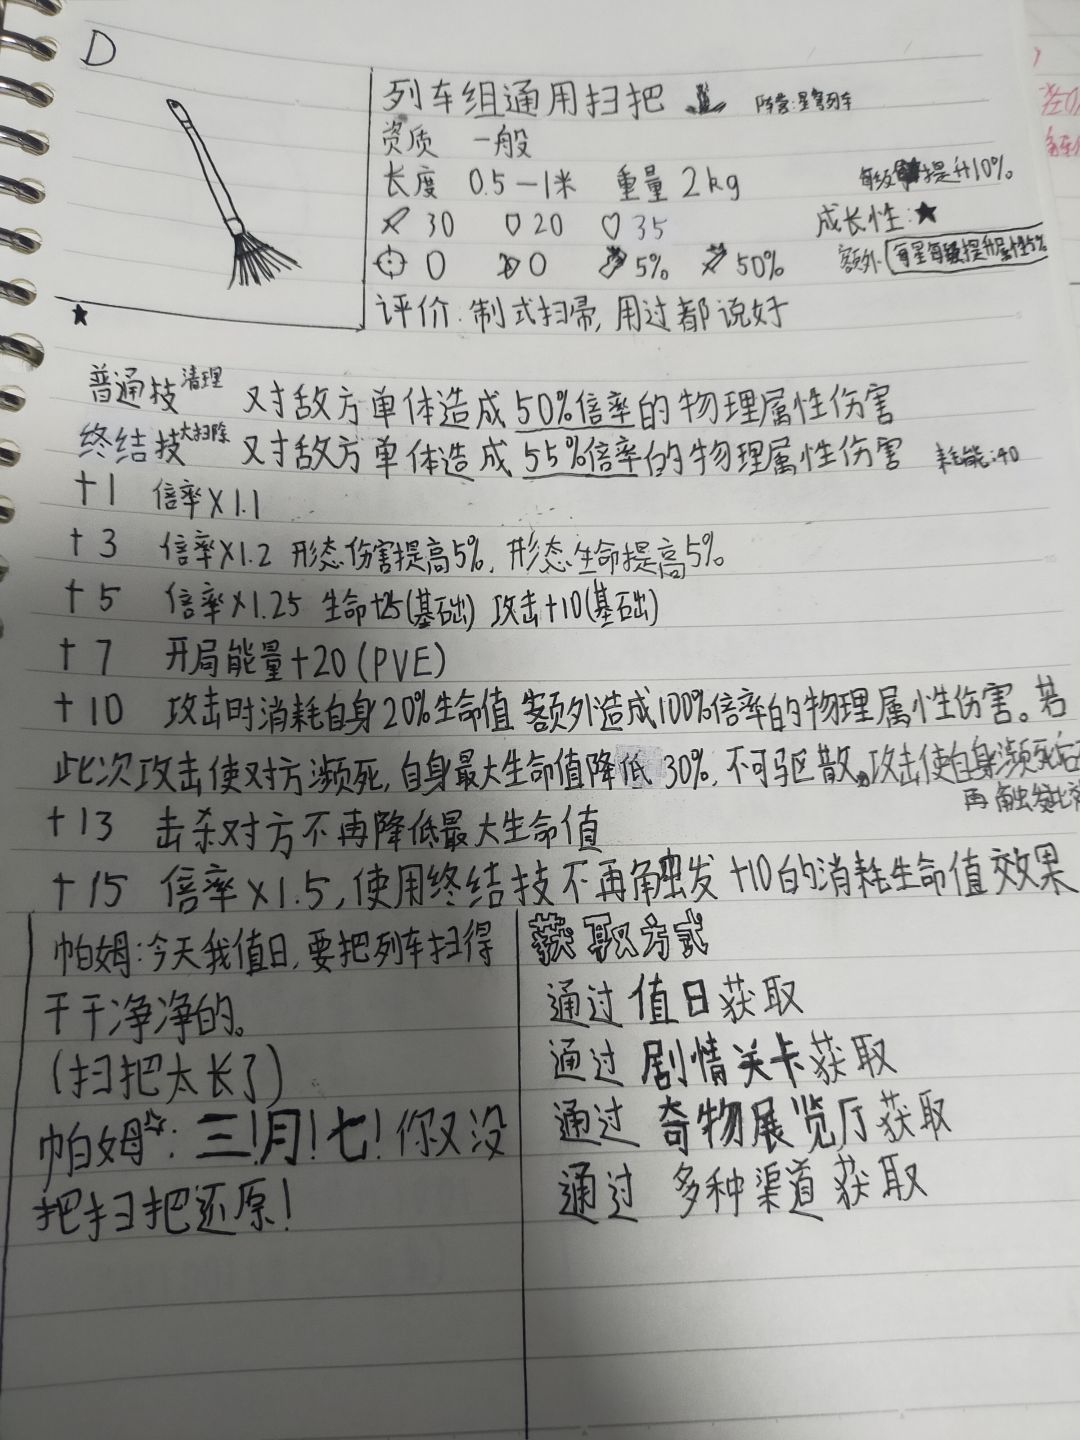 D
列车组通用扫把 阵营:星穹列车
资质 一般
长度 0.5—1米 重量 2kg
每级提升10%
30 20 35
成长性:★
0 0 5% 50%
额外 每星每级提升属性5%
★
评价:制式扫帚,用过都说好
普通技 清理 对敌方单体造成50%倍率的物理属性伤害
终结技 大扫除 对敌方单体造成55%倍率的物理属性伤害 耗能:40
+1 倍率×1.1
+3 倍率×1.2 形态伤害提高5%,形态生命提高5%
+5 倍率×1.25 生命+25(基础) 攻击+10(基础)
+7 开局能量+20(PVE)
+10 攻击时消耗自身20%生命值 额外造成100%倍率的物理属性伤害。若
此次攻击使对方濒死,自身最大生命值降低30%,不可驱散。攻击使自身濒死后
再触发此
+13 击杀对方不再降低最大生命值
+15 倍率×1.5,使用终结技不再触发+10的消耗生命值效果
帕姆:今天我值日,要把列车扫得
干干净净的。
(扫把太长了)
帕姆☆:三!月!七!你又没
把扫把还原!
获取方式
通过 值日获取
通过 剧情关卡获取
通过 奇物展览厅获取
通过 多种渠道获取